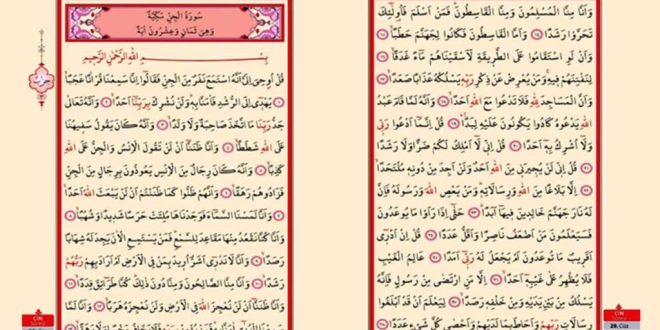 سُورَةُ الْجِنِّ مَكِّيَّةٌ
وَهِيَ ثَمَانٍ وَعِشْرُونَ اٰيَةً
بِسْمِ اللهِ الرَّحْمٰنِ الرَّحِيمِ
قُلْ اُوحِيَ اِلَيَّ اَنَّهُ اسْتَمَعَ نَفَرٌ مِنَ الْجِنِّ فَقَالُٓوا اِنَّا سَمِعْنَا قُرْاٰنًا عَجَبًا
﴿١﴾ يَهْدِٓي اِلَى الرُّشْدِ فَاٰمَنَّا بِهٖ وَلَنْ نُشْرِكَ بِرَبِّنَٓا اَحَدًا ﴿٢﴾ وَاَنَّهُ تَعَالٰى
جَدُّ رَبِّنَا مَا اتَّخَذَ صَاحِبَةً وَلَا وَلَدًا ﴿٣﴾ وَاَنَّهُ كَانَ يَقُولُ سَفِيهُنَا
عَلَى اللهِ شَطَطًا ﴿٤﴾ وَاَنَّا ظَنَنَّٓا اَنْ لَنْ تَقُولَ الْاِنْسُ وَالْجِنُّ عَلَى اللهِ
كَذِبًا ﴿٥﴾ وَاَنَّهُ كَانَ رِجَالٌ مِنَ الْاِنْسِ يَعُوذُونَ بِرِجَالٍ مِنَ الْجِنِّ
فَزَادُوهُمْ رَهَقًا ﴿٦﴾ وَاَنَّهُمْ ظَنُّوا كَمَا ظَنَنْتُمْ اَنْ لَنْ يَبْعَثَ اللهُ اَحَدًا ﴿٧﴾
وَاَنَّا لَمَسْنَا السَّمَٓاءَ فَوَجَدْنَاهَا مُلِئَتْ حَرَسًا شَدِيدًا وَشُهُبًا ﴿٨﴾
وَاَنَّا كُنَّا نَقْعُدُ مِنْهَا مَقَاعِدَ لِلسَّمْعِ فَمَنْ يَسْتَمِعِ الْاٰنَ يَجِدْ لَهُ شِهَابًا
رَصَدًا ﴿٩﴾ وَاَنَّا لَا نَدْرِٓي اَشَرٌّ اُرِيدَ بِمَنْ فِي الْاَرْضِ اَمْ اَرَادَ بِهِمْ رَبُّهُمْ
رَشَدًا ﴿١٠﴾ وَاَنَّا مِنَّا الصَّالِحُونَ وَمِنَّا دُونَ ذٰلِكَ كُنَّا طَرَٓائِقَ قِدَدًا ﴿١١﴾
وَاَنَّا ظَنَنَّٓا اَنْ لَنْ نُعْجِزَ اللهَ فِي الْاَرْضِ وَلَنْ نُعْجِزَهُ هَرَبًا ﴿١٢﴾ وَاَنَّا لَمَّا
وَاَنَّا مِنَّا الْمُسْلِمُونَ وَمِنَّا الْقَاسِطُونَ فَمَنْ اَسْلَمَ فَاُولٰٓئِكَ
تَحَرَّوْا رَشَدًا ﴿١٤﴾ وَاَمَّا الْقَاسِطُونَ فَكَانُوا لِجَهَنَّمَ حَطَبًا ﴿١٥﴾
وَاَنْ لَوِ اسْتَقَامُوا عَلَى الطَّرِيقَةِ لَاَسْقَيْنَاهُمْ مَٓاءً غَدَقًا ﴿١٦﴾
لِنَفْتِنَهُمْ فِيهِ وَمَنْ يُعْرِضْ عَنْ ذِكْرِ رَبِّهٖ يَسْلُكْهُ عَذَابًا صَعَدًا ﴿١٧﴾
وَاَنَّ الْمَسَاجِدَ لِلّٰهِ فَلَا تَدْعُوا مَعَ اللهِ اَحَدًا ﴿١٨﴾ وَاَنَّهُ لَمَّا قَامَ عَبْدُ
اللهِ يَدْعُوهُ كَادُوا يَكُونُونَ عَلَيْهِ لِبَدًا ﴿١٩﴾ قُلْ اِنَّمَٓا اَدْعُوا رَبِّي
وَلَٓا اُشْرِكُ بِهٖٓ اَحَدًا ﴿٢٠﴾ قُلْ اِنِّي لَٓا اَمْلِكُ لَكُمْ ضَرًّا وَلَا رَشَدًا
﴿٢١﴾ قُلْ اِنِّي لَنْ يُجِيرَنِي مِنَ اللهِ اَحَدٌ وَلَنْ اَجِدَ مِنْ دُونِهٖ مُلْتَحَدًا
﴿٢٢﴾ اِلَّا بَلَاغًا مِنَ اللهِ وَرِسَالَاتِهٖ وَمَنْ يَعْصِ اللهَ وَرَسُولَهُ فَاِنَّ
لَهُ نَارَ جَهَنَّمَ خَالِدِينَ فِيهَٓا اَبَدًا ﴿٢٣﴾ حَتّٰٓى اِذَا رَاَوْا مَا يُوعَدُونَ
فَسَيَعْلَمُونَ مَنْ اَضْعَفُ نَاصِرًا وَاَقَلُّ عَدَدًا ﴿٢٤﴾ قُلْ اِنْ اَدْرِٓي
اَقَرِيبٌ مَا تُوعَدُونَ اَمْ يَجْعَلُ لَهُ رَبِّٓي اَمَدًا ﴿٢٥﴾ عَالِمُ الْغَيْبِ
فَلَا يُظْهِرُ عَلٰى غَيْبِهٖٓ اَحَدًا ﴿٢٦﴾ اِلَّا مَنِ ارْتَضٰى مِنْ رَسُولٍ فَاِنَّهُ
يَسْلُكُ مِنْ بَيْنِ يَدَيْهِ وَمِنْ خَلْفِهٖ رَصَدًا ﴿٢٧﴾ لِيَعْلَمَ اَنْ قَدْ اَبْلَغُوا
رِسَالَاتِ رَبِّهِمْ وَاَحَاطَ بِمَا لَدَيْهِمْ وَاَحْصٰى كُلَّ شَيْءٍ عَدَدًا ﴿٢٨﴾
CİN
CİN
29. Cüz